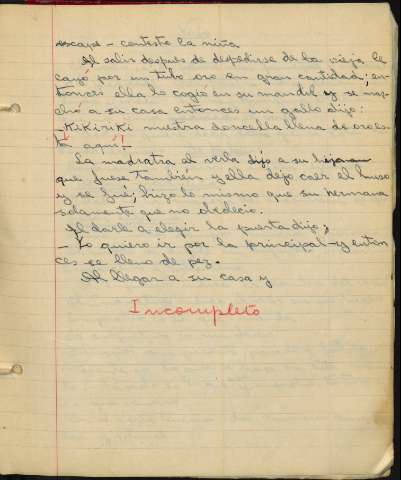 escape - contesta la niña
Al salir despues de despedirse de la vieja le
cayó por un tubo oro en gran cantidad; en-
tonces ella lo cogio en su mandil y se mar-
chó a su casa entonces un gallo dijo:
- Kikiriki nuestra doncella llena de oro es-
ta aqui!-
La madrastra al verla dijo a su hija
que fuese tambien y ella dejo caer el huso
y se fué; hizo lo mismo que su hermana
solamente que no obedecio.
Al darle a elegir la puerta dijo;
- Yo quiero ir por la principal - y enton-
ces se lleno de pez.
Al llegar a su casa y
Incompleto